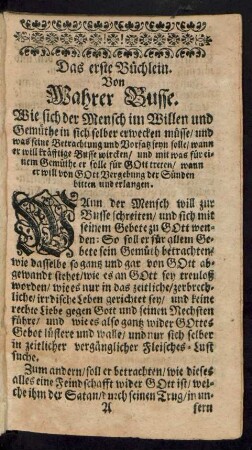 Das erste Büchlein.
Von
Wahrer Busse.
Wie sich der Mensch im Willen und
Gemüthe in sich selber erwecken müsse/ und
was seine Betrachtung und Vorsatz seyn solle/ wann
er will kräfftige Busse wircken/ und mit was für ei-
nem Gemüthe er solle für GOtt tretten/ wann
er will von GOtt Vergebung der Sünden
bitten und erlangen.
WAnn der Mensch will zur
Busse schreiten/ und sich mit
seinem Gebete zu GOtt wen-
den: So soll er für allem Ge-
bete sein Gemüth betrachten/
wie dasselbe so gantz und gar von GOtt ab-
gewandt stehet/ wie es an GOtt sey treuloß
worden/ wie es nur in das zeitliche/ zerbrech-
liche/ irrdische Leben gerichtet sey/ und keine
rechte Liebe gegen Gott und seinen Nechsten
führe/ und wie es also gantz wider GOttes
Gebot lüstere und walle/ und nur sich selber
in zeitlicher vergänglicher Fleisches-Lust
suche.
Zum andern/ soll er betrachten/ wie dieses
alles eine Feindschafft wider GOtt ist/ wel-
che ihm der Satan/ durch seinen Trug/ in un-
A sern